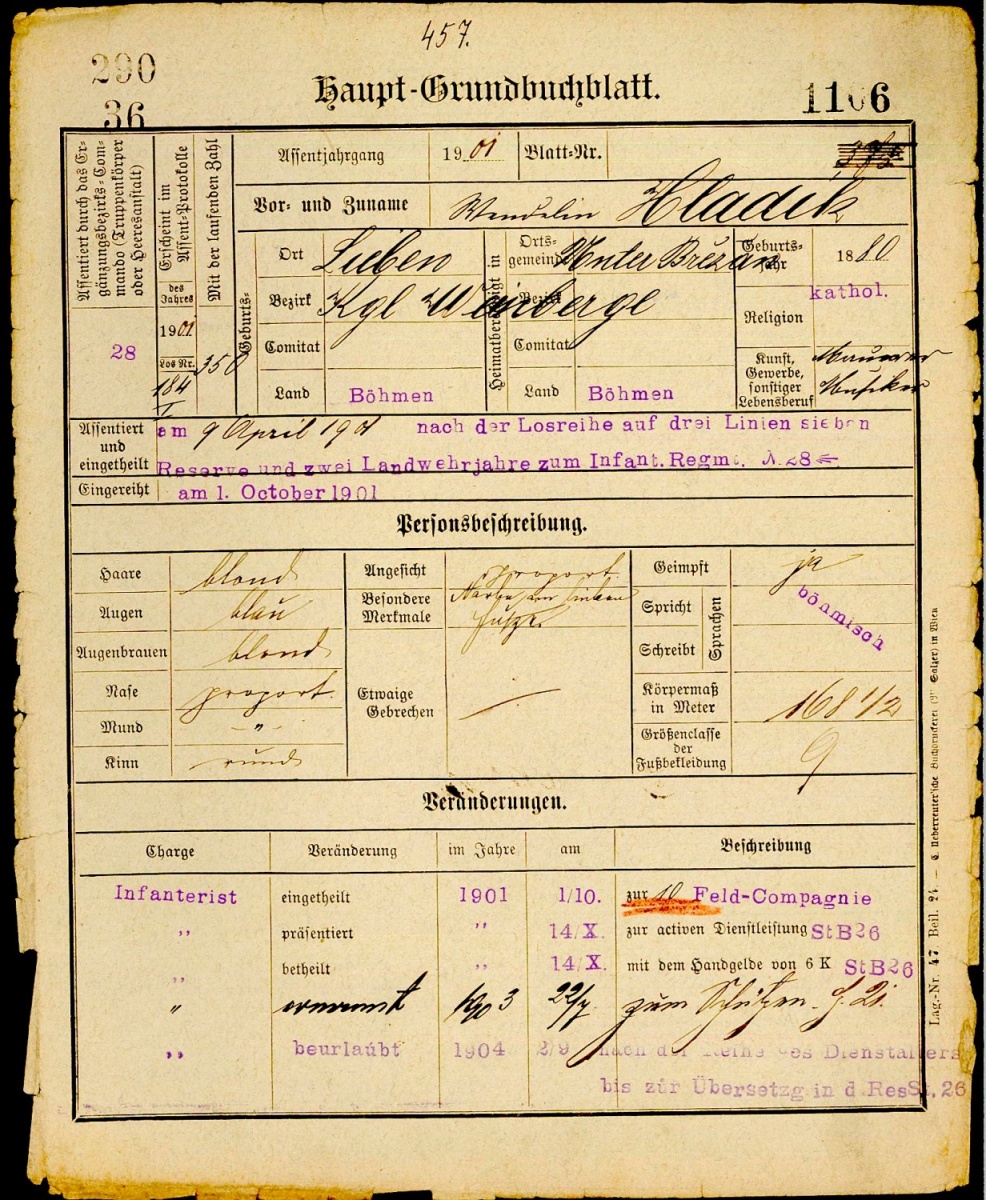 457.
290
36
Haupt-Grundbuchblatt.
1106
Assentiert durch das Ergänzungsbezirks-Commando (Truppenkörper oder Heeresanstalt)
28
Erscheint im Assent-Protokolle
des Jahres
1901
Los Nr.
184
I
Mit der laufenden Zahl
350
Assentjahrgang 1901 Blatt-Nr.
Vor- und Zuname Wendelin Hladík
Geburts-
Ort Lieben
Bezirk Kgl Weinberge
Comitat
Land Böhmen
Heimatberechtigt in
Ortsgemeinde Unter Břežan
Bezirk
Comitat
Land Böhmen
Geburtsjahr 1880
Religion kathol.
Kunst, Gewerbe, sonstiger Lebensberuf Maurer
Musiker
Assentiert und eingetheilt am 9 April 1901 nach der Losreihe auf drei Linien sieben
Reserve und zwei Landwehrjahre zum Infant. Regmt. N 28
Eingereiht am 1. October 1901
Personsbeschreibung.
Haare blond
Augen blau
Augenbrauen blond
Nase proport.
Mund - „ -
Kinn rund
Angesicht proport.
Besondere Merkmale Narbe am linken
Etwaige Gebrechen
Geimpft ja
Spricht
Schreibt
Sprachen
böhmisch
Körpermaß in Meter 168 1/2
Größenclasse der Fußbekleidung 9
Veränderungen.
Charge Veränderung im Jahre am Beschreibung
Infanterist eingetheilt 1901 1/10. zur 10 Feld-Compagnie
„ präsentiert „ 14/X. zur activen Dienstleistung StB26
„ betheilt „ 14/X. mit dem Handgelde von 6 K StB26
„ ernannt 1903 22/7 zum Schützen
„ beurlaubt 1904 2/9 nach der Reihe des Dienstalters
bis zur Übersetzg in d. Res St. 26
Lag.-Nr. 47 Beil. 24 — C. Ueberreuter'sche Buchdruckerei (M. Salzer) in Wien